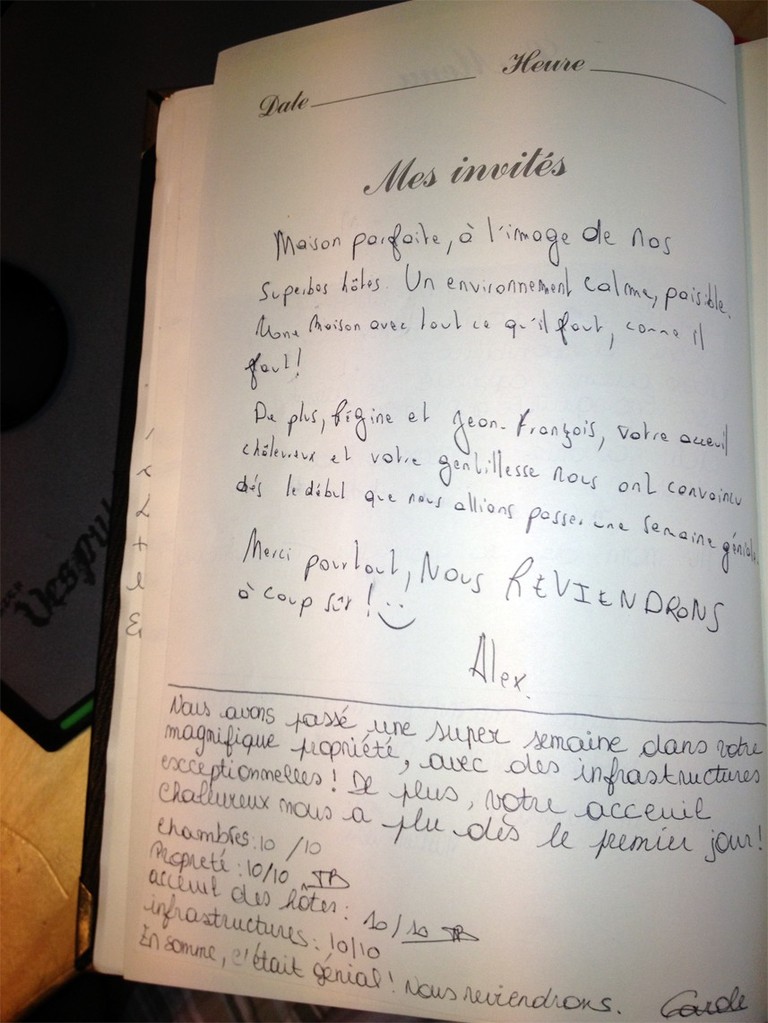 Date Heure
Mes invités
Maison parfaite, à l'image de nos
superbes hôtes. Un environnement calme, paisible.
Une maison avec tout ce qu'il faut, comme il
faut!
De plus, Régine et Jean-François, votre acceuil
châleureux et votre gentillesse nous ont convaincu
dès le début que nous allions passer une semaine géniale.
Merci pour tout, Nous REVIENDRONS
à coup sûr!
Alex.
Nous avons passé une super semaine dans votre
magnifique propriété, avec des infrastructures
exceptionnelles! De plus, votre acceuil
challureux nous a plu dès le premier jour!
chambres: 10/10
Propreté: 10/10 TB
acceuil des hôtes: 10/10 TB
infrastructures: 10/10
En somme, c'était génial! Nous reviendrons.
Vespu